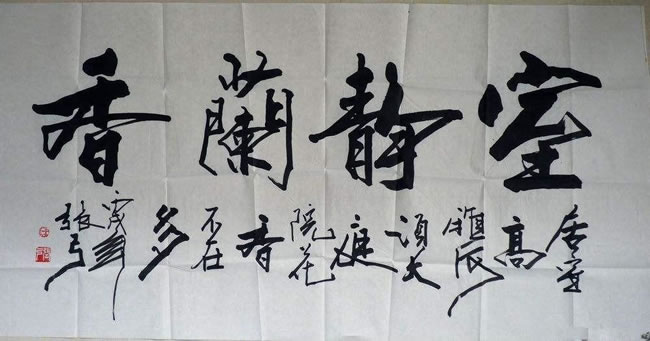 室靜蘭香
居室高雅須大庭院花香不在多